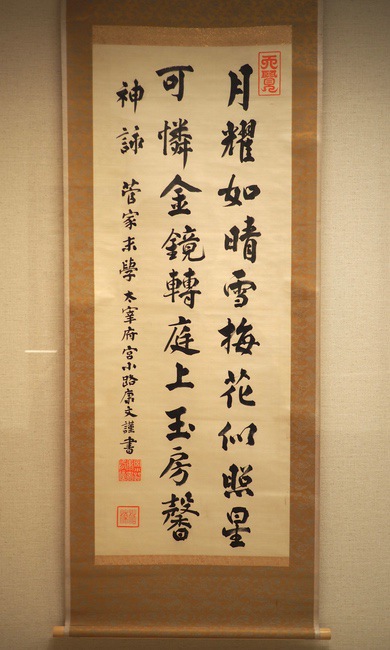 月耀如晴雪梅花似照星
可憐金鏡轉庭上玉房馨
神詠 菅家末學 太宰府宮小路康文謹書